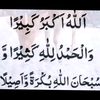 اَللّٰهُ اَكْبَرُ كَبِيْرًا
وَالْحَمْدُ لِلّٰهِ كَثِيْرًا وَّ
سُبْحَانَ اللّٰهِ بُكْرَةً وَّاَصِيْلًا